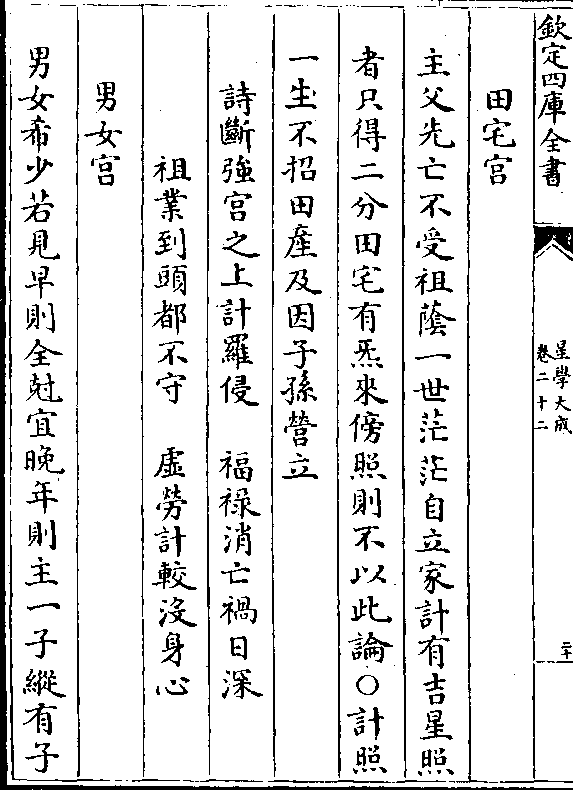 欽定四庫全書
星學大成
卷二十二
二十
田宅宫
主父先亡不受祖蔭一世茫茫自立家計有吉星照
者只得二分田宅有炁來傍照則不以此論○計照
一生不招田產及因子孫營立
詩斷強宫之上計羅侵　福祿消亡禍日深
祖業到頭都不守　虛勞計較沒身心
男女宫
男女希少若見早則全尅宜晚年則主一子縱有子